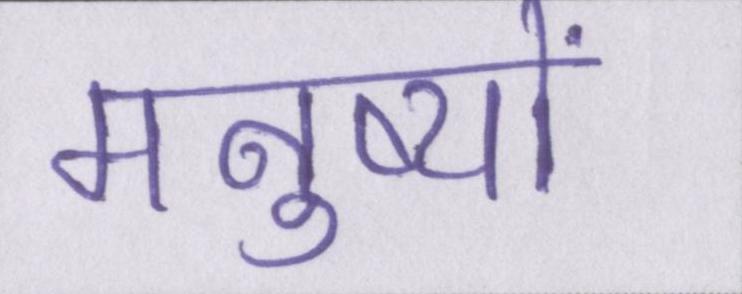 मनुष्यों